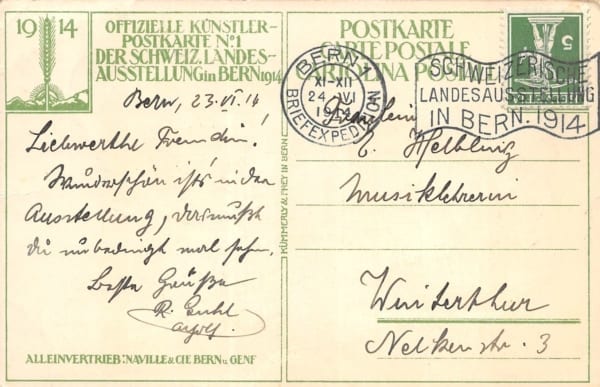 1914
OFFIZIELLE KÜNSTLER-
POSTKARTE No. 1
DER SCHWEIZ. LANDES-
AUSSTELLUNG in BERN 1914
Bern, 23. VI. 14
Liebwerthe Freundin!
Wunderschön ist's in der
Ausstellung, das mußt
du unbedingt mal sehn.
Beste Grüße
R.
ALLEINVERTRIEB: NAVILLE & CIE. BERN u. GENF
KÜMMERLY & FREY IN BERN
POSTKARTE
CARTE POSTALE
CARTOLINA POSTALE
BERN
XI-XII
24 VI
BRIEFEXPEDITION
SCHWEIZERISCHE
LANDESAUSSTELLUNG
IN BERN. 1914
5
Fräulein
E. Helbling
Musiklehrerin
Winterthur
Nelkenstr. 3